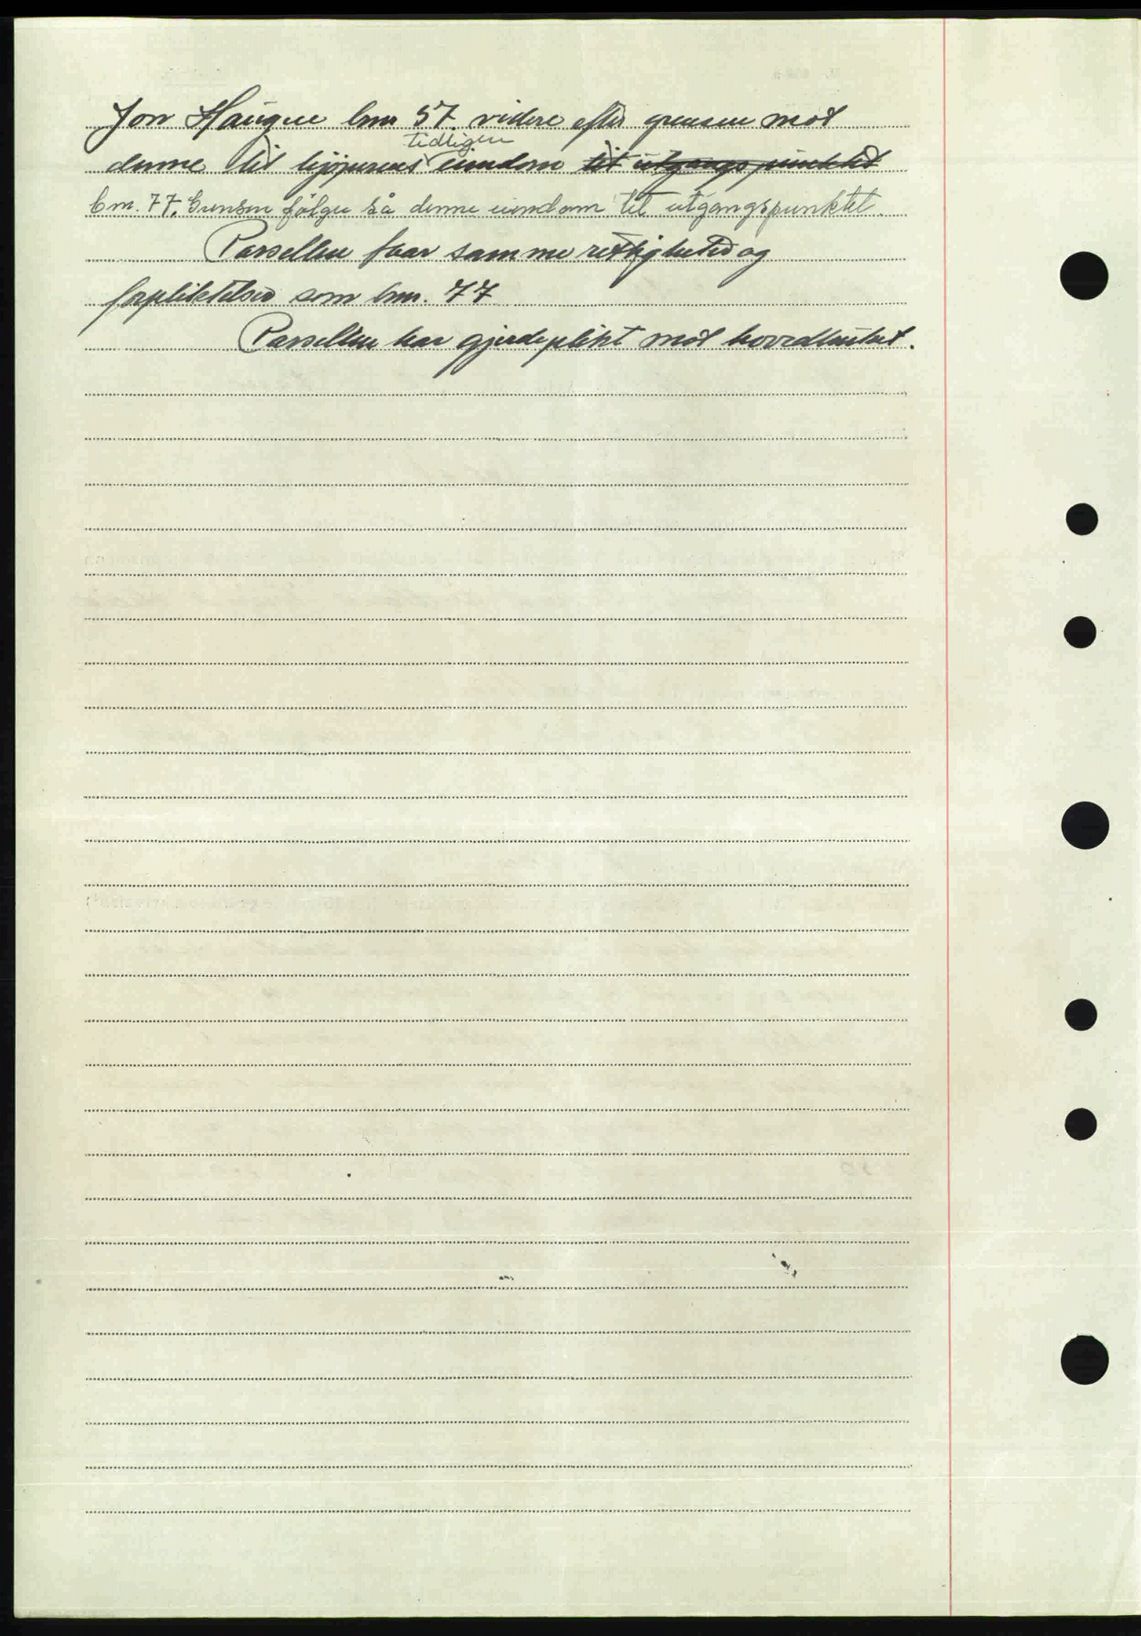 Jon Haugen bnr 57. videre efter grensen mot
denne til kjøperens tidligere eiendom til utgangspunktet
bnr. 77. Grensen følger så denne eiendom til utgangspunktet.
Parsellen faar samme rettigheter og
forpliktelser som bnr. 77
Parsellen har gjerdeplikt mot hovedbruket.